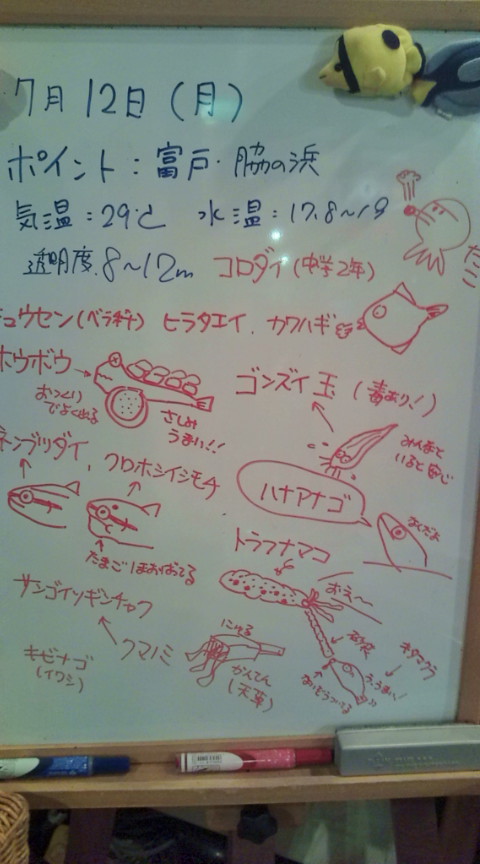 7月12日(月)
ポイント:富戸・脇の浜
気温:29℃ 水温:17.8〜19
透明度.8〜12m コロダイ(中学2年)
たこ
キュウセン(ベラ科) ヒラタエイ、カワハギ
ホウボウ
さしみ
うまい!!
ゴンズイ玉(毒あり!)
みんなと
いると安心
ネンブツダイ、クロホシイシモチ
ハナアナゴ
たまごほおばってる
トラフナマコ
おぇ〜
サンゴイソギンチャク
クマノミ
キビナゴ
(イワシ)
にせる
かんてん
(天草)
砂袋
キタマクラ
うまい!